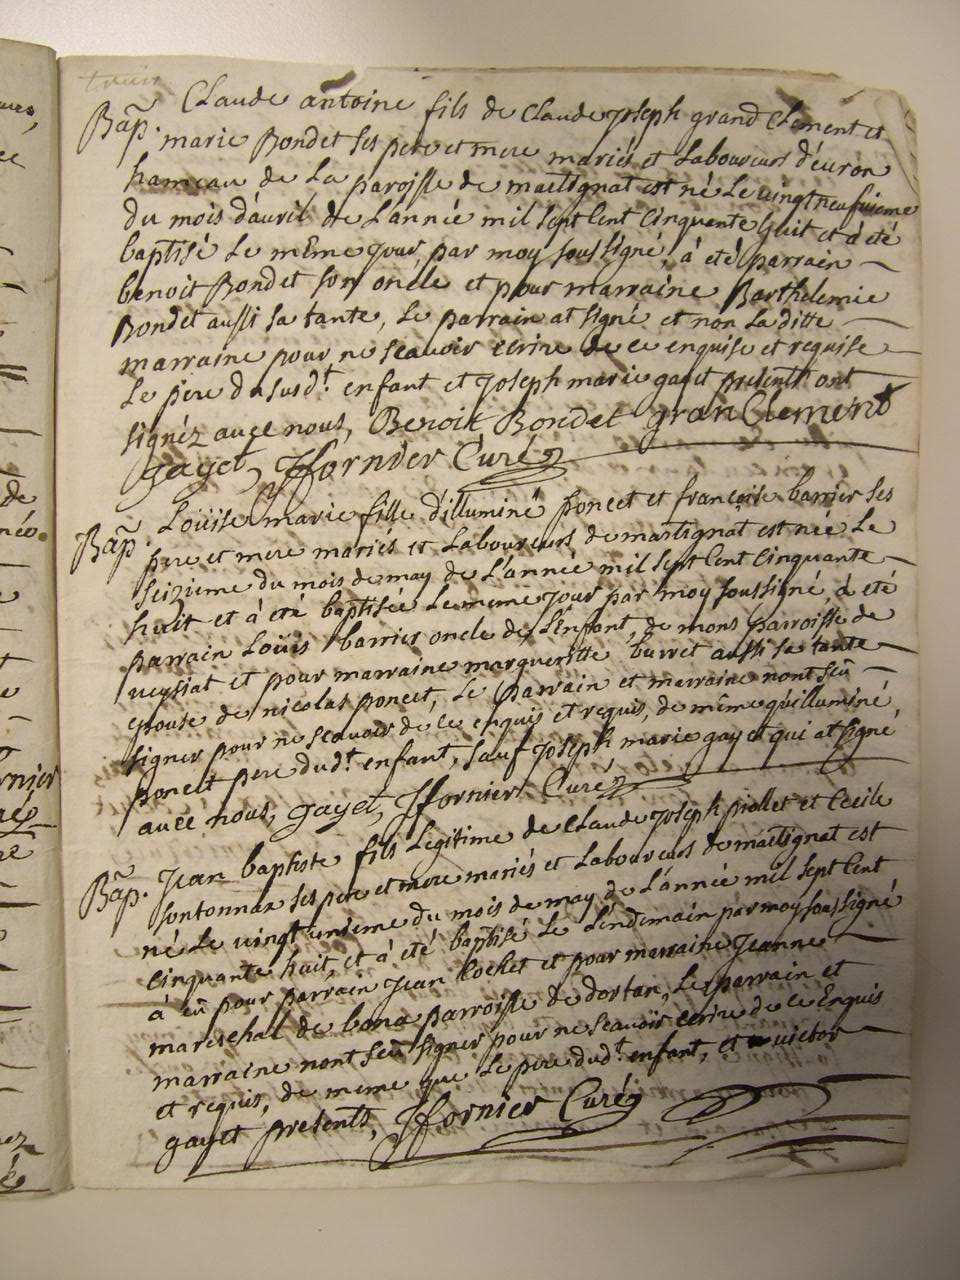 Bap. Claude antoine fils de Claude joseph grand Clement et
marie Bondet ses pere et mere mariés et Laboureurs d'évron
hameau de La paroisse de martignat est né Le vingtneufvieme
du mois d'auril de L'année mil sept Cent Cinquante huit et à été
baptisé Le même jour, par moy soussigné, à été parrain
benoit Bondet son oncle et pour marraine Barthelemie
Bondet aussi sa tante, Le parrain at signé et non La ditte
marraine pour ne scauoir ecrire de ce enquise et requise
Le pere du susd.t enfant et joseph marie gayet presents ont
signéz auec nous, Benoit Bondet granClement
gayet, Jfornier Curé
Bap. Loüise marie fille d'illuminé poncet et françoise barrier ses
pere et mere mariés et Laboureurs de martignat est née Le
seizieme du mois de may de L'année mil sept Cent Cinquante
huit et à été baptisée Le meme jour par moy soussigné, à été
parrain Loüis barrier oncle de L'enfant, de mons parroisse de
veysiat et pour marraine margueritte burret aussi sa tante
epouse de nicolas poncet, Le parrain et marraine n'ont seü
signer pour ne scauoir de ce enquis et requis, de même qu'illuminé
poncet pere dud.t enfant, sauf joseph marie gayet qui at signé
auec nous, gayet, Jfornier Curé
Bap. Jean baptiste fils Legitime de Claude joseph piollet et Cecile
sontonnax ses pere et mere mariés et Laboureurs de martignat est
né Le vingt unieme du mois de may de L'année mil sept Cent
Cinquante huit, et à été baptisé Le Lendemain par moy soussigné
à eü pour parrain jean Cochet et pour marraine jeanne
mareschal de bona parroisse de dortan, Les parrain et
marraine n'ont seü signer pour ne scauoir ecrire de ce Enquis
et requis, de meme que Le pere dud.t enfant, et victor
gayet presents, Jfornier Curé